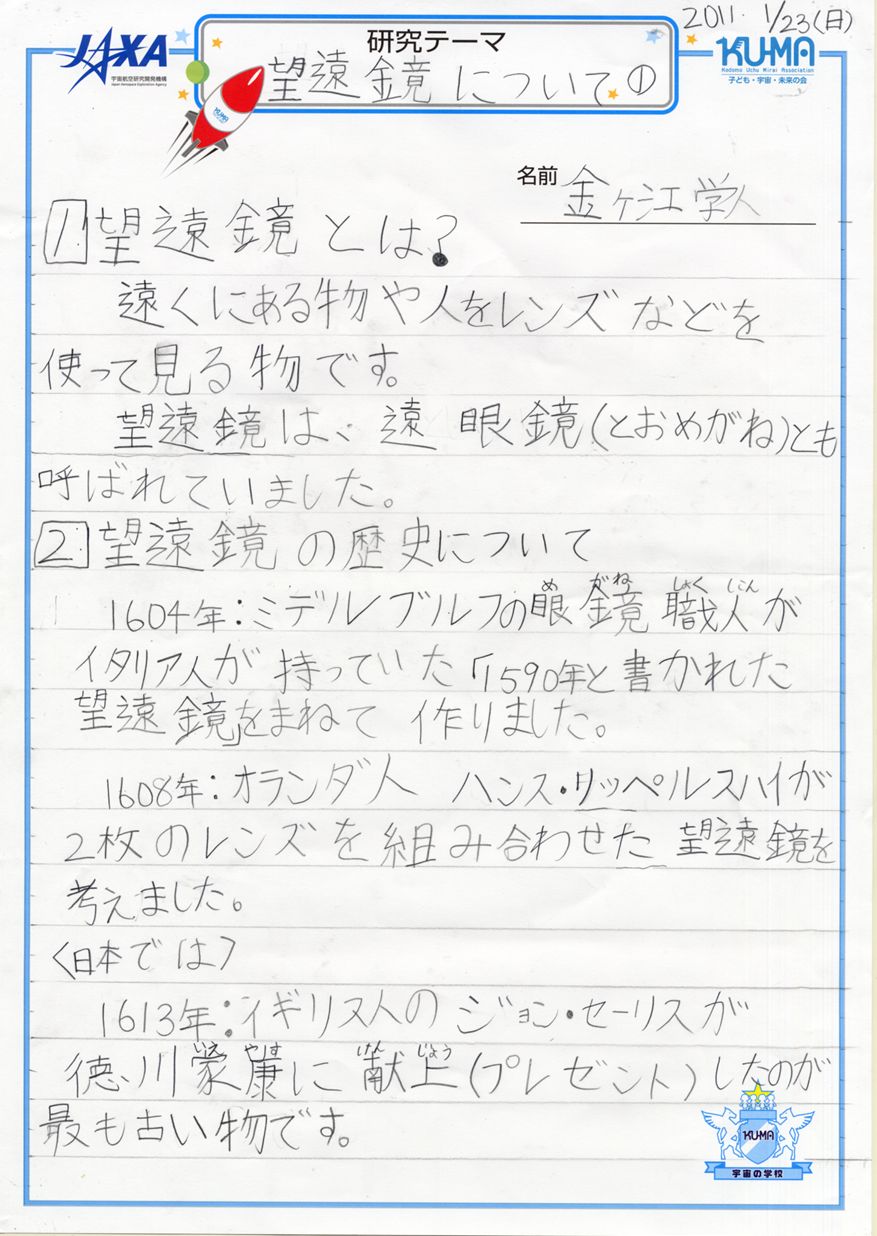 2011. 1/23(日)
JAXA
宇宙航空研究開発機構
Japan Aerospace Exploration Agency
研究テーマ
望遠鏡について①
KU-MA
Kodomo Uchu Mirai Association
子ども・宇宙・未来の会
KU-MA
名前 金ヶ江学人
1 望遠鏡とは?
遠くにある物や人をレンズなどを
使って見る物です。
望遠鏡は、遠眼鏡(とおめがね)とも
呼ばれていました。
2 望遠鏡の歴史について
めがねしょくにん
1604年:ミデルブルフの眼鏡職人が
イタリア人が持っていた「1590年と書かれた
望遠鏡」をまねて作りました。
1608年:オランダ人 ハンス・リッペルスハイが
2枚のレンズを組み合わせた望遠鏡を
考えました。
〈日本では〉
1613年:イギリス人のジョン・セーリスが
いえやす けんじょう
徳川家康に献上(プレゼント)したのが
最も古い物です。
KU-MA
宇宙の学校